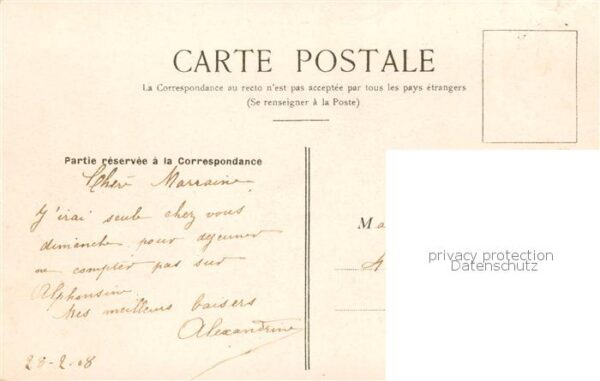 CARTE POSTALE
La Correspondance au recto n'est pas acceptée par tous les pays étrangers
(Se renseigner à la Poste)
Partie réservée à la Correspondance
Chère Marraine
J'irai seule chez vous
dimanche pour déjeuner
ne compter pas sur
Alphonsine
Mes meilleurs baisers
Alexandrine
23-2-08
Ma
privacy protection
Datenschutz